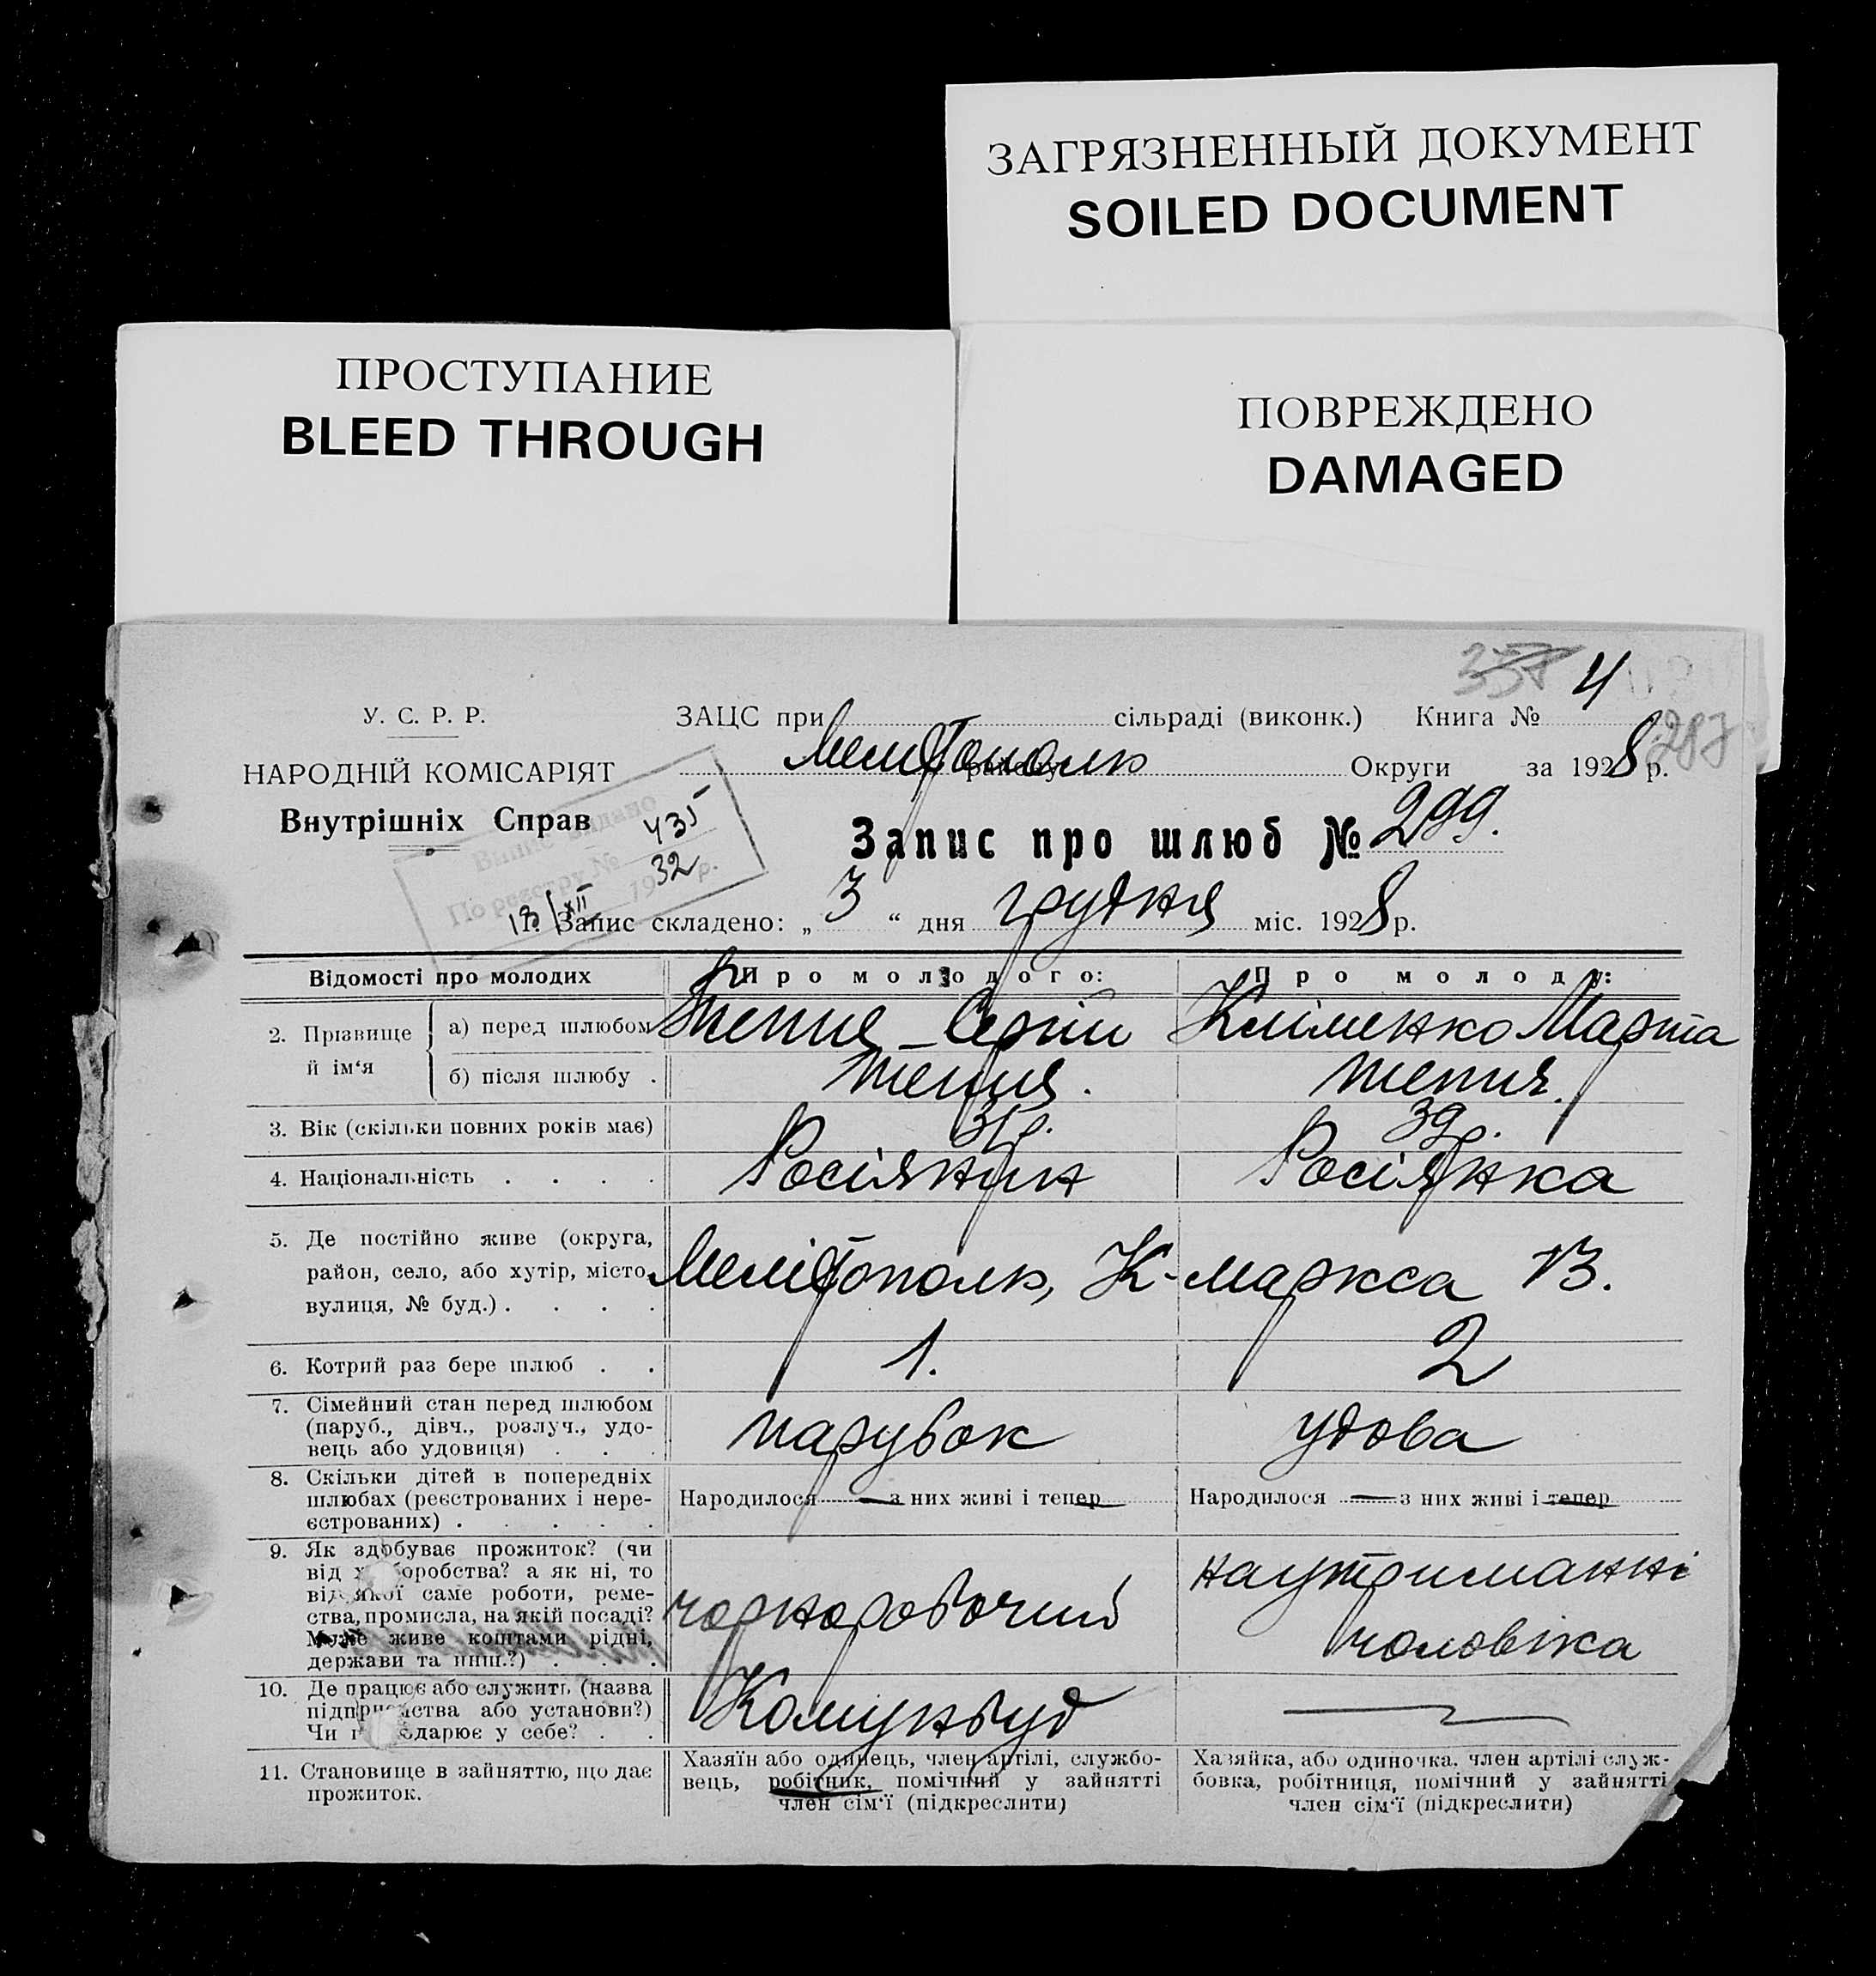 ЗАГРЯЗНЕННЫЙ ДОКУМЕНТ
SOILED DOCUMENT
ПРОСТУПАНИЕ
BLEED THROUGH
ПОВРЕЖДЕНО
DAMAGED
358 4
У. С. Р. Р.
ЗАЦС при сільраді (виконк.) Книга №
287
НАРОДНІЙ КОМІСАРІЯТ
Мелітополь району Округи за 1928 р.
Внутрішніх Справ
Випис видано
По реєстру № 435
18/XII 1932 р.
Запис про шлюб № 299.
1. Запис складено: „ 3 “ дня грудня міс. 1928 р.
Відомості про молодих
Про молодого:
Про молоду:
2. Прізвище й ім‘я
а) перед шлюбом
Сергій
Кліменко Марта
б) після шлюбу .
3. Вік (скільки повних років має)
31 р.
39 р.
4. Національність . . . .
Росіянин
Росіянка
5. Де постійно живе (округа,
район, село, або хутір, місто,
вулиця, № буд.) . . . .
Мелітополь, К-Маркса 13.
6. Котрий раз бере шлюб . .
1.
2
7. Сімейний стан перед шлюбом
(паруб., дівч., розлуч., удо-
вець або удовиця) . . .
парубок
удова
8. Скільки дітей в попередніх
шлюбах (реєстрованих і нере-
єстрованих) . . . . .
Народилося — з них живі і тепер —
Народилося — з них живі і тепер —
9. Як здобуває прожиток? (чи
від х оробства? а як ні, то
від якої саме роботи, реме-
ства, промисла, на якій посаді?
Може живе коштами рідні,
держави та инш.?) . . .
чорноробочий
на утриманні
чоловіка
10. Де працює або служить (назва
підприємства або установи?)
Чи г дарює у себе? . .
Комунбуд
—
11. Становище в зайняттю, що дає
прожиток.
Хазяїн або одинець, член артілі, службо-
вець, робітник, помічний у зайнятті
член сім‘ї (підкреслити)
Хазяйка, або одиночка, член артілі служ-
бовка, робітниця, помічний у зайнятті
член сім‘ї (підкреслити)